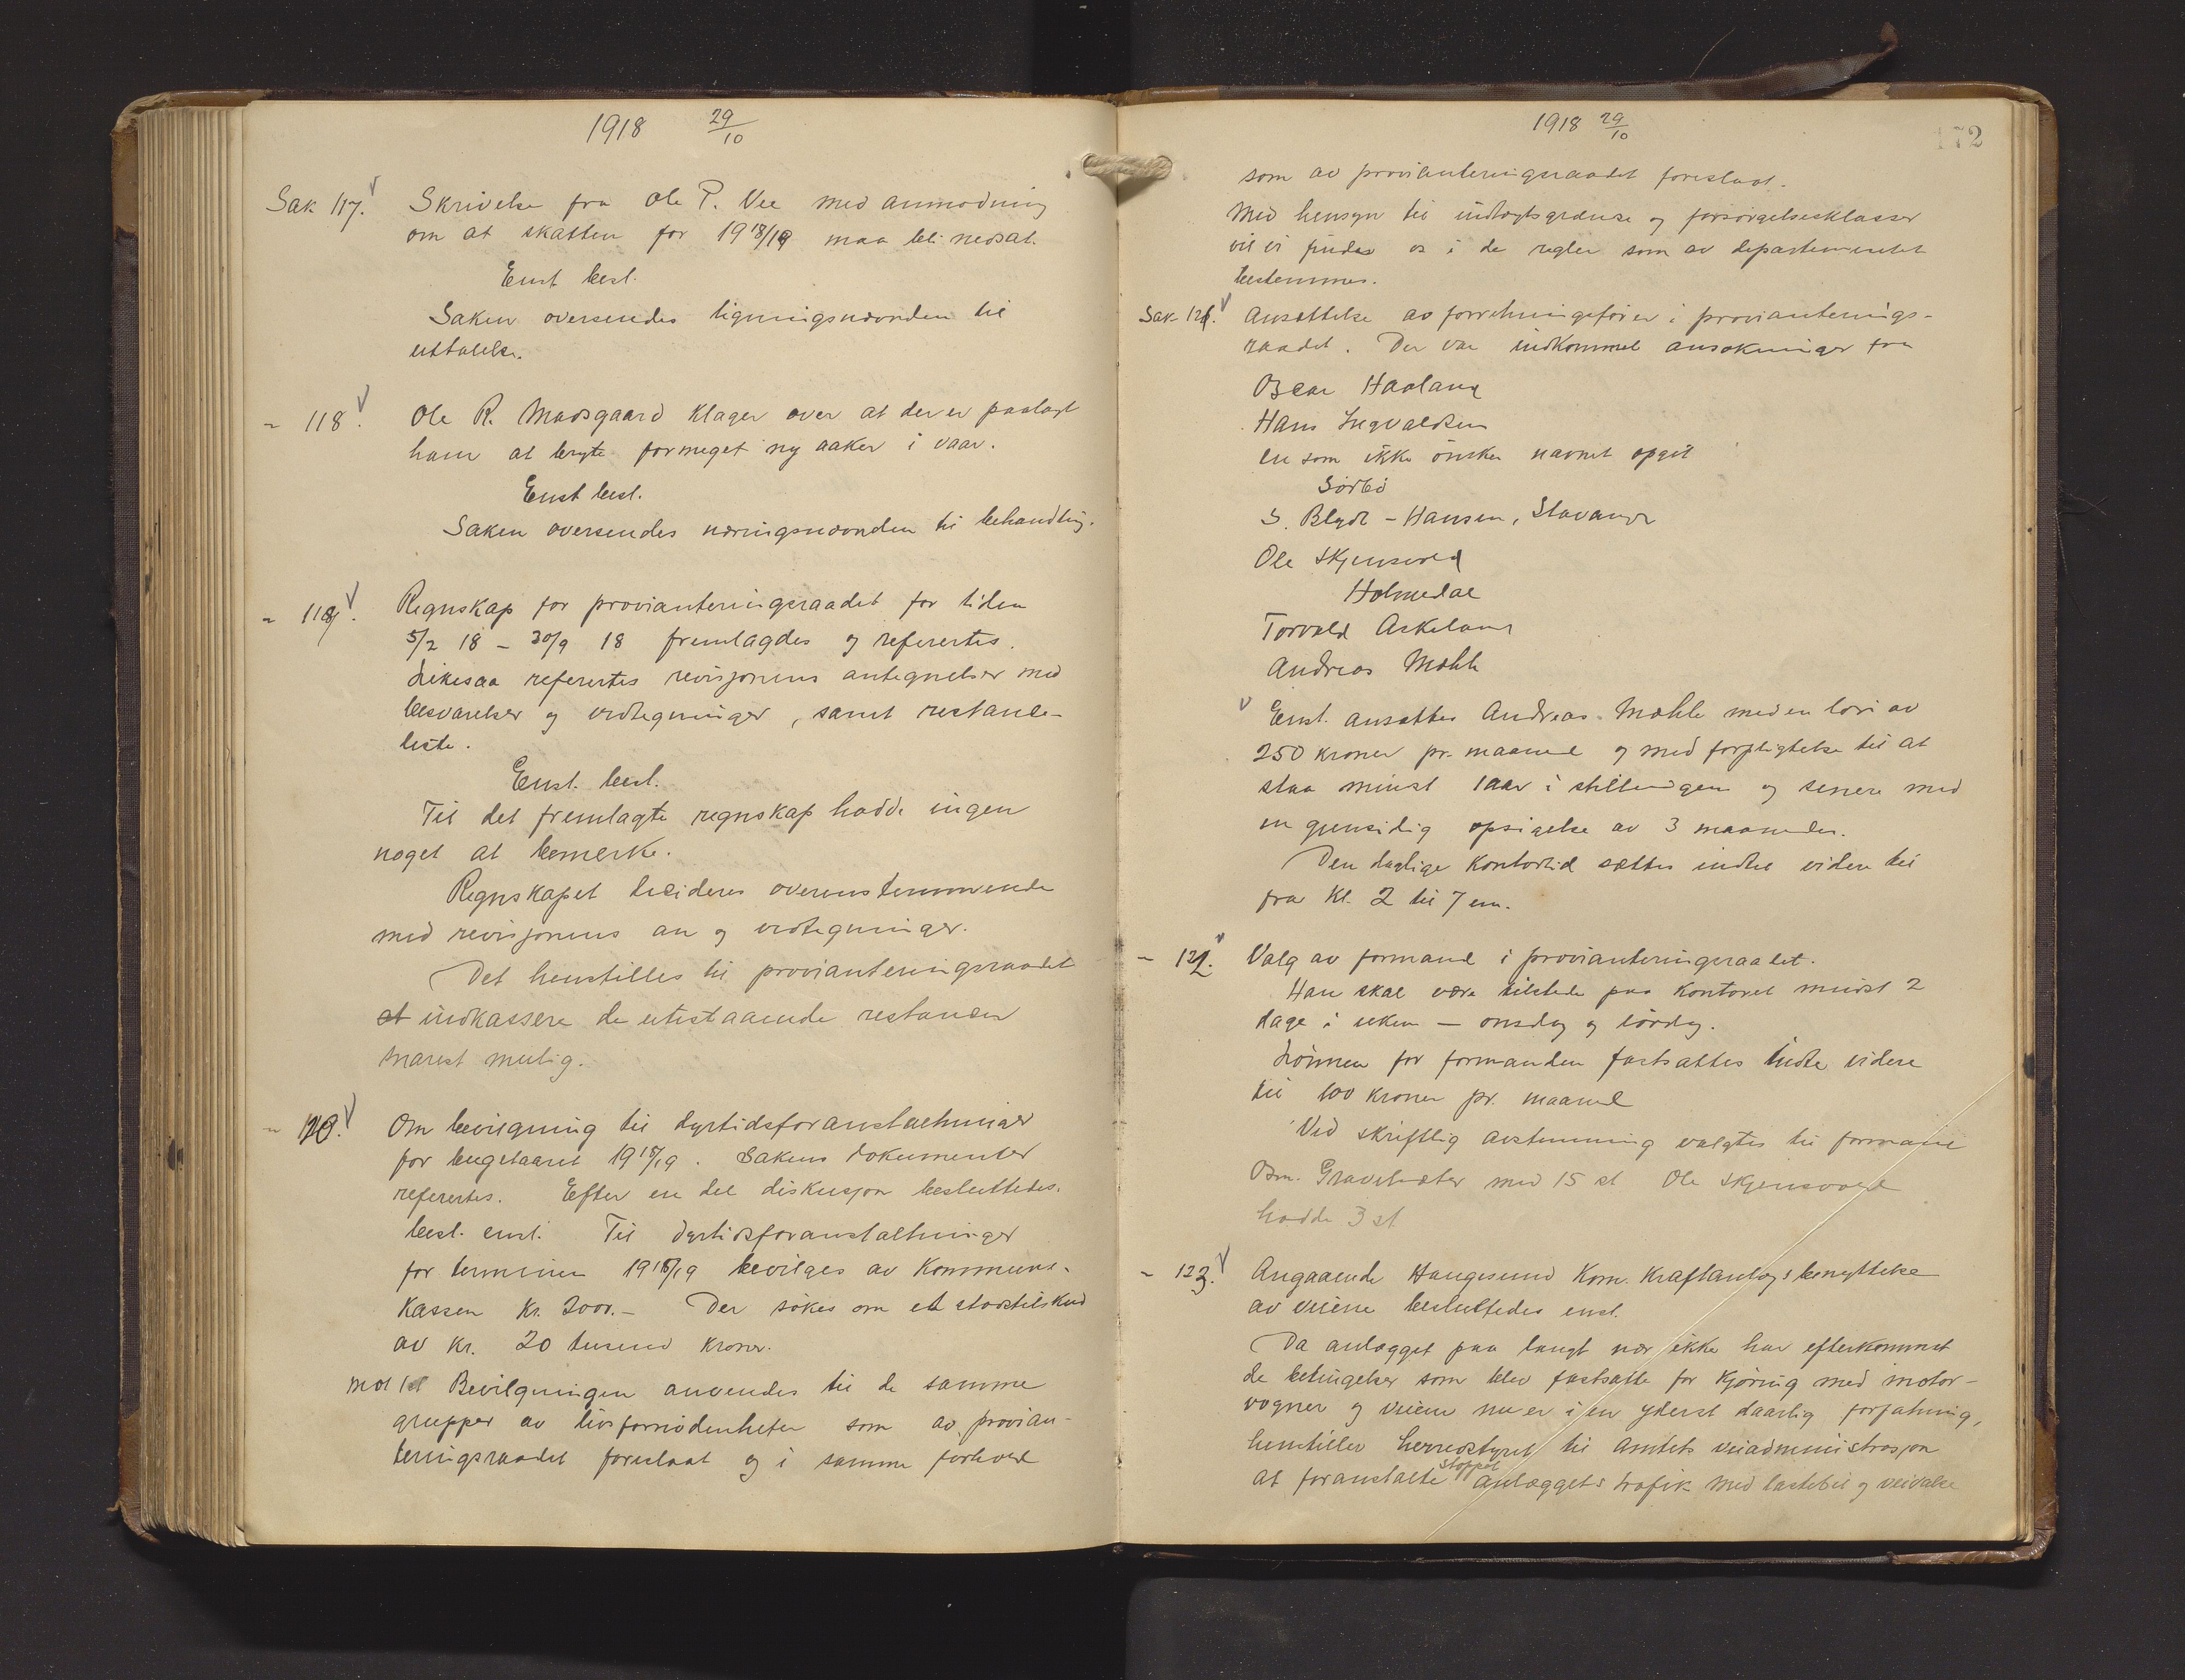 1918 29/10
Sak 117. Skrivelse fra Ole P. Vee med anmodning
om at skatten for 1918/19 maa bli nedsat.
Enst besl.
Saken oversendes ligningsnævnden til
uttalelse.
" 118. Ole R. Madsgaard klager over at der er paalagt
ham at bryte formeget ny aaker i vaar.
Enst besl.
Saken oversendes næringsnævnden til behandling.
" 119. Regnskap for provianteringsraadet for tiden
5/2 18 – 30/9 18 fremlagdes og refertes.
Likesaa refertes revisjonens antegnelser med
besvarelser og vedtegninger, samt restance-
liste.
Enst. besl.
Til det fremlagte regnskap hadde ingen
noget at bemerke.
Regnskapet decideres overensstemmende
med revisjonens an og vedtegninger.
Det henstilles til provianteringsraadet
at indkassere de utestaaende restancer
snarest mulig.
" 120. Om bevilgning til dyrtidsforanstaltninger
for bugetaaret 1918/19. Sakens dokumenter
refertes. Efter en del diskusjon besluttedes.
besl. enst. Til dyrtidsforanstaltninger
for terminen 1918/19 bevilges av Kommune-
kassen Kr. 2000.- Der søkes om et statstilskud
av Kr. 20 tusend kroner.
mot 1 st Bevilgningen anvendes til de samme
grupper av livsfornødenheter som av provian-
teringsraadet foreslaat og i samme forhold
1918 29/10
172
som av provianteringsraadet foreslaat.
Med hensyn til indtægtsgrænse og forsørgelsesklasser
vil vi finde os i de regler som av departementet
bestemmes.
Sak 121. Ansættelse av forretningsfører i provianterings-
raadet. Der var indkommet ansøkninger fra
Oscar Haaland
Hans Ingvaldsen
en som ikke ønsker navnet opgit
Sørbø
S. Blydt-Hansen, Stavanger
Ole Skjensvold
Holmedal
Torvald Askeland
Andreas Mæhle
Enst. ansattes Andreas Mæhle med en løn av
250 kroner pr. maaned og med forpligtelse til at
staa minst 1 aar i stillingen og senere med
en gjensidig opsigelse av 3 maaneder.
Den daglige kontortid sættes indtil videre til
fra Kl. 2 til 7 em.
" 122. Valg av formand i provianteringsraadet.
Han skal være tilstede paa kontoret mindst 2
dage i uken – onsdag og lørdag.
Lønnen for formanden fastsattes indtil videre
til 100 kroner pr. maaned
Ved skriftlig avstemning valgtes til formand
Osm. Gravelsæter med 15 st Ole Skjensvold
hadde 3 st
" 123. Angaaende Haugesund Kom. Kraftanlægs benyttelse
av veiene besluttedes enst.
Da anlægget paa langt nær ikke har efterkommet
de betingelser som blev fastsatte for kjøring med motor-
vogner og veiene nu er i en yderst daarlig forfatning,
henstiller herredstyret til Amtets veiadministrasjon
at foranstalte stoppet anlæggets trafik med lastebil og veivalse